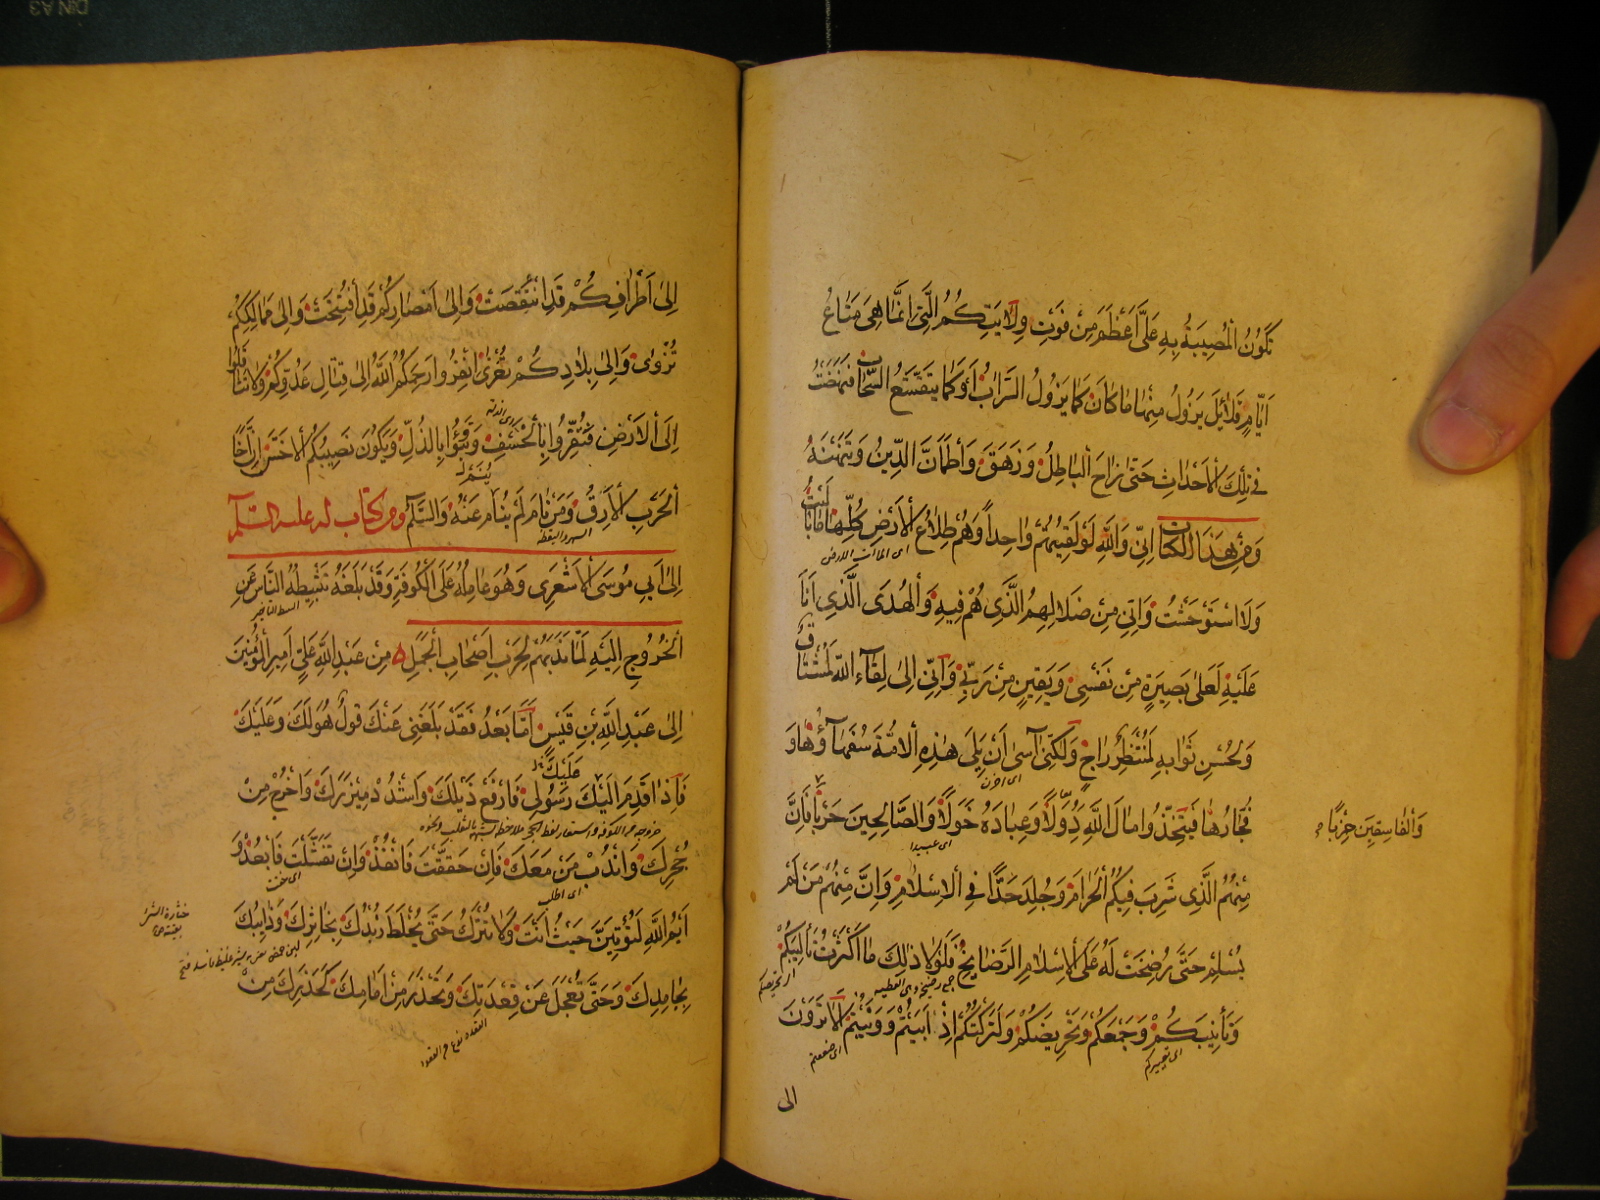 تَكُوْنُ الْمُصِيْبَةُ بِهِ عَلَيَّ اَعْظَمَ مِنْ فَوْتِ وِلَايَتِكُمُ الَّتِيْ اِنَّمَا هِيَ مَتَاعُ
اَيَّامٍ قَلَائِلَ يَزُوْلُ مِنْهَا مَا كَانَ كَمَا يَزُوْلُ السَّرَابُ اَوْ كَمَا يَتَقَشَّعُ السَّحَابُ فَنَهَضْتُ
فِي تِلْكَ الْاَحْدَاثِ حَتّٰى زَاحَ الْبَاطِلُ وَزَهَقَ وَاطْمَاَنَّ الدِّيْنُ وَتَنَهْنَهَ
وَمِنْ هٰذَا الْكِتَابِ اِنِّيْ وَاللّٰهِ لَوْ لَقِيْتُهُمْ وَاحِدًا وَهُمْ طِلَاعُ الْاَرْضِ كُلِّهَا مَا بَالَيْتُ
وَلَا اسْتَوْحَشْتُ وَاِنِّيْ مِنْ ضَلَالِهِمُ الَّذِيْ هُمْ فِيْهِ وَالْهُدَى الَّذِيْ اَنَا
عَلَيْهِ لَعَلٰى بَصِيْرَةٍ مِنْ نَفْسِيْ وَيَقِيْنٍ مِنْ رَبِّيْ وَاِنِّيْ اِلٰى لِقَاءِ اللّٰهِ لَمُشْتَاقٌ
وَلِحُسْنِ ثَوَابِهِ لَمُنْتَظِرٌ رَاجٍ وَلٰكِنِّيْ اٰسٰى اَنْ يَلِيَ هٰذِهِ الْاُمَّةَ سُفَهَاؤُهَا وَ
اى احزن
فُجَّارُهَا فَيَتَّخِذُوا مَالَ اللّٰهِ دُوَلًا وَعِبَادَهُ خَوَلًا وَالصَّالِحِيْنَ حَرْبًا فَاِنَّ
وَالْفَاسِقِيْنَ حِزْبًا
اى عبيدا
مِنْهُمُ الَّذِيْ شَرِبَ فِيْكُمُ الْحَرَامَ وَجُلِدَ حَدًّا فِي الْاِسْلَامِ وَاِنَّ مِنْهُمْ مَنْ لَمْ
يُسْلِمْ حَتّٰى رُضِخَتْ لَهُ عَلَى الْاِسْلَامِ الرَّضَائِخُ فَلَوْلَا ذٰلِكَ مَا اَكْثَرْتُ تَاْلِيْبَكُمْ
وَتَاْنِيْبَكُمْ وَجَمْعَكُمْ وَتَحْرِيْضَكُمْ وَلَتَرَكْتُكُمْ اِذْ اَبَيْتُمْ وَوَنَيْتُمْ اَلَا تَرَوْنَ
اى تعييركم
اى ضعفتم
الى
اِلٰى اَطْرَافِكُمْ قَدِ انْتَقَصَتْ وَاِلٰى اَمْصَارِكُمْ قَدِ افْتُتِحَتْ وَاِلٰى مَمَالِكِكُمْ
تُزْوٰى وَاِلٰى بِلَادِكُمْ تُغْزٰى اِنْفِرُوا رَحِمَكُمُ اللّٰهُ اِلٰى قِتَالِ عَدُوِّكُمْ وَلَا تَثَّاقَلُوا
اِلَى الْاَرْضِ فَتُقِرُّوا بِالْخَسْفِ وَتَبُوْءُوا بِالذُّلِّ وَيَكُوْنَ نَصِيْبُكُمُ الْاَخَسَّ اِنَّ اَخَا
الْحَرْبِ الْاَرِقُ وَمَنْ نَامَ لَمْ يُنَمْ عَنْهُ وَالسَّلَامُ وَمِنْ كِتَابٍ لَهُ عَلَيْهِ السَّلَامُ
اِلٰى اَبِي مُوْسَى الْاَشْعَرِي وَهُوَ عَامِلُهُ عَلَى الْكُوْفَةِ وَقَدْ بَلَغَهُ تَثْبِيْطُهُ النَّاسَ عَنِ
الْخُرُوْجِ اِلَيْهِ لَمَّا نَدَبَهُمْ لِحَرْبِ اَصْحَابِ الْجَمَلِ مِنْ عَبْدِ اللّٰهِ عَلِيٍّ اَمِيْرِ الْمُؤْمِنِيْنَ
اِلٰى عَبْدِ اللّٰهِ بْنِ قَيْسٍ اَمَّا بَعْدُ فَقَدْ بَلَغَنِيْ عَنْكَ قَوْلٌ هُوَ لَكَ وَعَلَيْكَ
عَلَيْكَ
فَاِذَا قَدِمَ اِلَيْكَ رَسُوْلِيْ فَارْفَعْ ذَيْلَكَ وَاشْدُدْ مِيْزَرَكَ وَاخْرُجْ مِنْ
جُحْرِكَ وَانْدُبْ مَنْ مَعَكَ فَاِنْ حَقَّقْتَ فَانْفُذْ وَاِنْ تَفَشَّلْتَ فَابْعُدْ وَ
اى اطلب
اَيْمُ اللّٰهِ لَتُؤْتَيَنَّ حَيْثُ اَنْتَ وَلَا تُتْرَكُ حَتّٰى يُخْلَطَ زُبْدُكَ بِخَاثِرِكَ وَذَائِبُكَ
بِجَامِدِكَ وَحَتّٰى تُعْجَلَ عَنْ قِعْدَتِكَ وَتَحْذَرَ مِنْ اَمَامِكَ كَحَذَرِكَ مِنْ
القعدة نوع من القعود